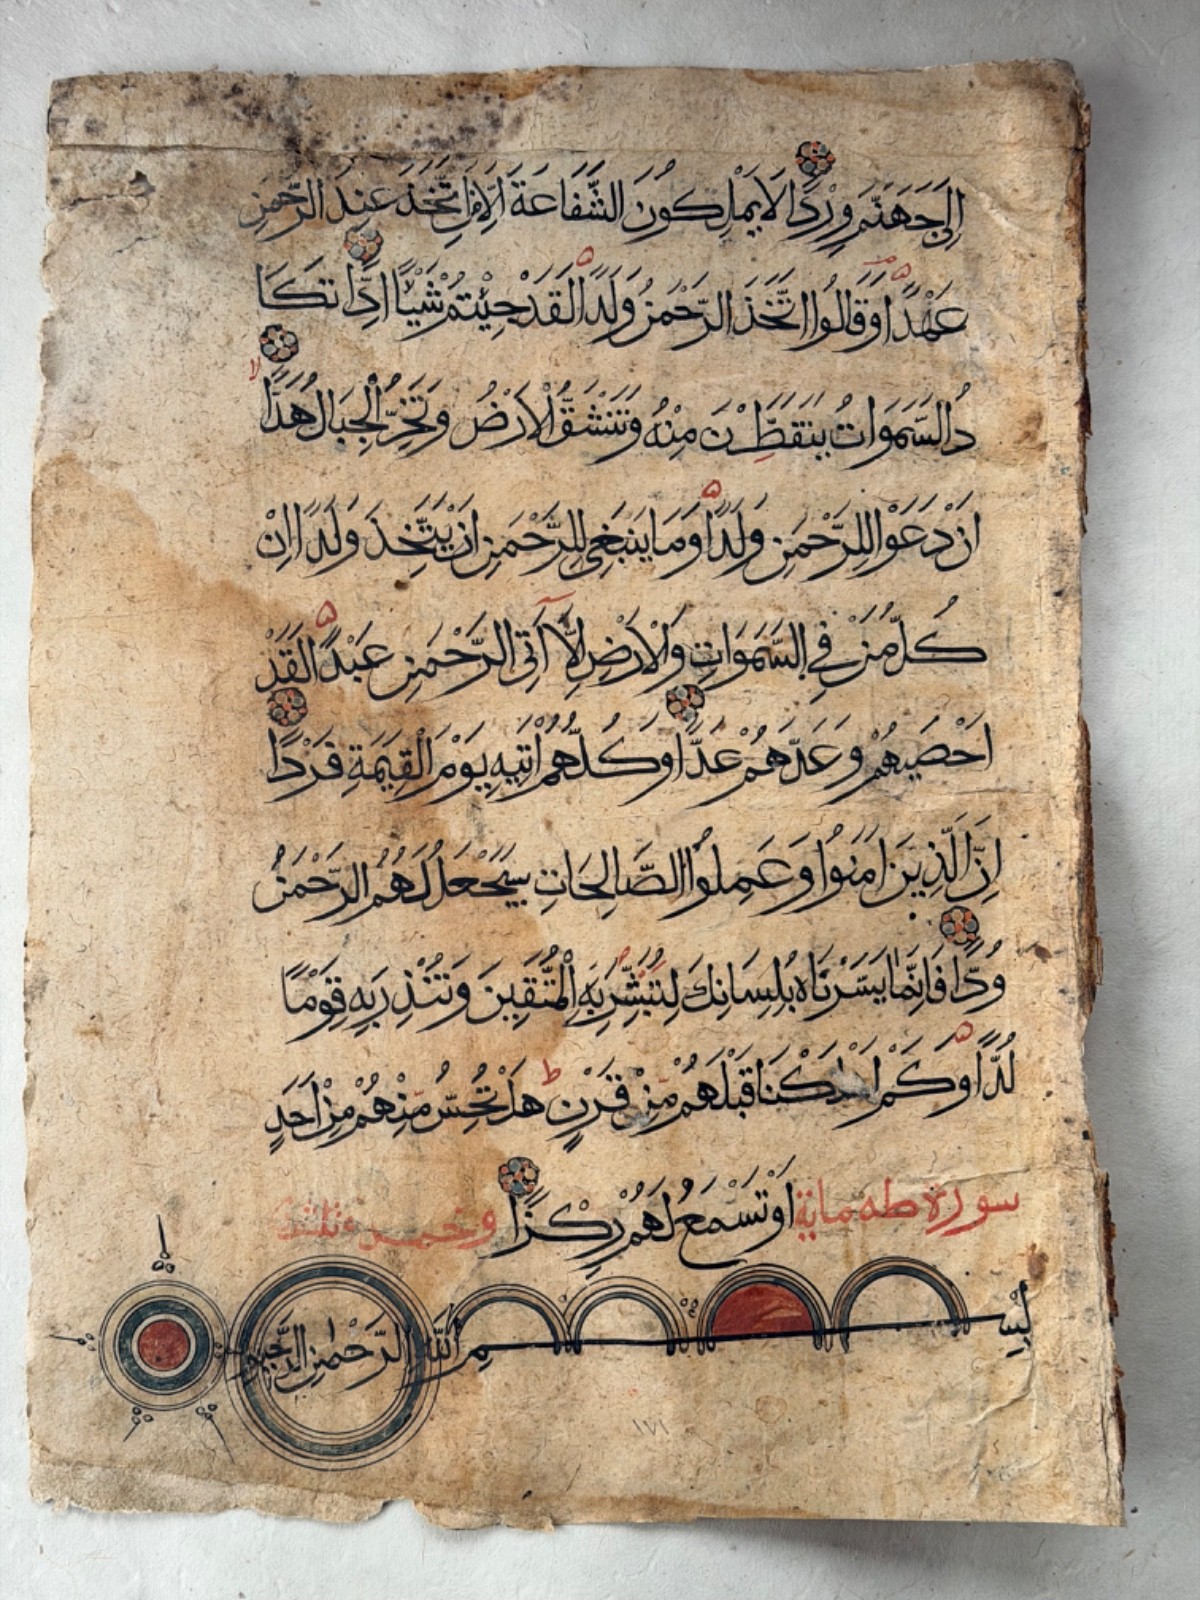 اِلَىٰ جَهَنَّمَ وِرْدًا لَا يَمْلِكُونَ الشَّفَاعَةَ اِلَّا مَنِ اتَّخَذَ عِنْدَ الرَّحْمٰنِ
عَهْدًا وَقَالُوا اتَّخَذَ الرَّحْمٰنُ وَلَدًا لَقَدْ جِئْتُمْ شَيْئًا اِدًّا تَكَا
دُ السَّمَوَاتُ يَتَفَطَّرْنَ مِنْهُ وَتَنْشَقُّ الْاَرْضُ وَتَخِرُّ الْجِبَالُ هَدًّا
اَنْ دَعَوْا لِلرَّحْمَنِ وَلَدًا وَمَا يَنْبَغِي لِلرَّحْمَنِ اَنْ يَتَّخِذَ وَلَدًا اِنْ
كُلُّ مَنْ فِي السَّمَوَاتِ وَالْاَرْضِ اِلَّا آتِي الرَّحْمَنِ عَبْدًا لَقَدْ
اَحْصَيهُمْ وَعَدَّهُمْ عَدًّا وَكُلُّهُمْ اتِيهِ يَوْمَ الْقِيَمَةِ فَرْدًا
اِنَّ الَّذِينَ امَنُوا وَعَمِلُوا الصَّالِحَاتِ سَيَجْعَلُ لَهُمُ الرَّحْمَنُ
وُدًّا فَاِنَّمَا يَسَّرْنَاهُ بِلِسَانِكَ لِتُبَشِّرَ بِهِ الْمُتَّقِينَ وَتُنْذِرَ بِهِ قَوْمًا
لُدًّا وَكَمْ اَهْلَكْنَا قَبْلَهُمْ مِنْ قَرْنٍ هَلْ تُحِسُّ مِنْهُمْ مِنْ اَحَدٍ
سورة طه ماية اَوْ تَسْمَعُ لَهُمْ رِكْزًا وخمس وثلثون
بِسْمِ اللّٰهِ الرَّحْمٰنِ الرَّحِيمِ
١٧١